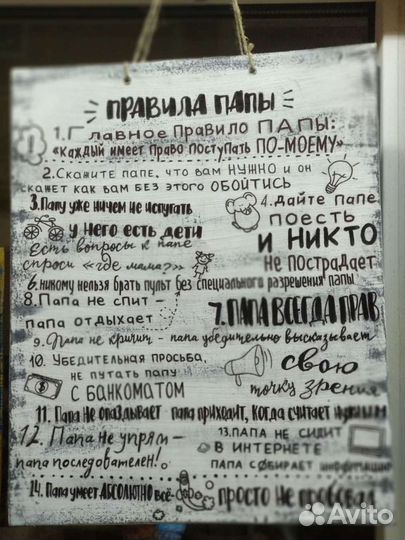 ПРАВИЛА ПАПЫ
1. Главное Правило ПАПЫ:
«Каждый имеет право поступать ПО-МОЕМУ»
2. Скажите папе, что вам НУЖНО и он
скажет как вам без этого ОБОЙТИСЬ
3. Папу уже ничем не испугать
у него есть дети
4. Дайте папе
поесть
и НИКТО
не пострадает
Есть вопросы к папе
спроси «где мама?»
6. никому нельзя брать пульт без специального разрешения папы
8. Папа не спит -
папа отдыхает
7. ПАПА ВСЕГДА ПРАВ
9. Папа не кричит - папа убедительно высказывает
свою
точку зрения
10. Убедительная просьба,
не путать папу
с БАНКОМАТОМ
11. Папа не опаздывает папа приходит, когда считает нужным
12. Папа не упрям -
папа последователен!
13. ПАПА НЕ СИДИТ
В ИНТЕРНЕТЕ
ПАПА СОБИРАЕТ информацию
14. Папа умеет АБСОЛЮТНО всё -
просто не пробовал
Avito